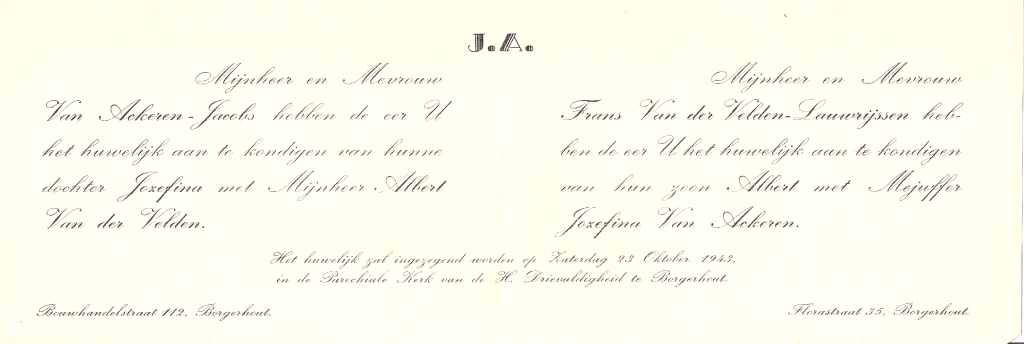 J.A.
Mijnheer en Mevrouw
Van Ackeren-Jacobs hebben de eer U
het huwelijk aan te kondigen van hunne
dochter Jozefina met Mijnheer Albert
Van der Velden.
Mijnheer en Mevrouw
Frans Van der Velden-Lauwrijssen heb-
ben de eer U het huwelijk aan te kondigen
van hun zoon Albert met Mejuffer
Jozefina Van Ackeren.
Het huwelijk zal ingezegend worden op Zaterdag 23 Oktober 1943,
in de Parochiale Kerk van de H. Drievuldigheid te Borgerhout.
Bouwhandelstraat 112, Borgerhout.
Florastraat 35, Borgerhout.